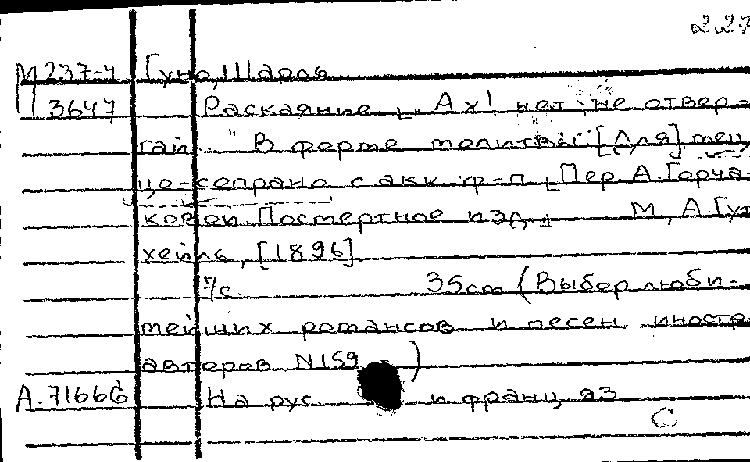 227
М 237-4 Гуно, Шарль
П 3647 Раскаяние. "Ах! нет, не отвер-
гай." В форме молитвы [Для] мец
цо-сопрано с акк. ф-п. Пер. А. Горча-
ковой. Посмертное изд. М., А. Гут
хейль, [1896]
7 с. 35 см (Выбор люби-
мейших романсов и песен иностр
авторов N 159 )
А. 71666 На рус и франц яз
С